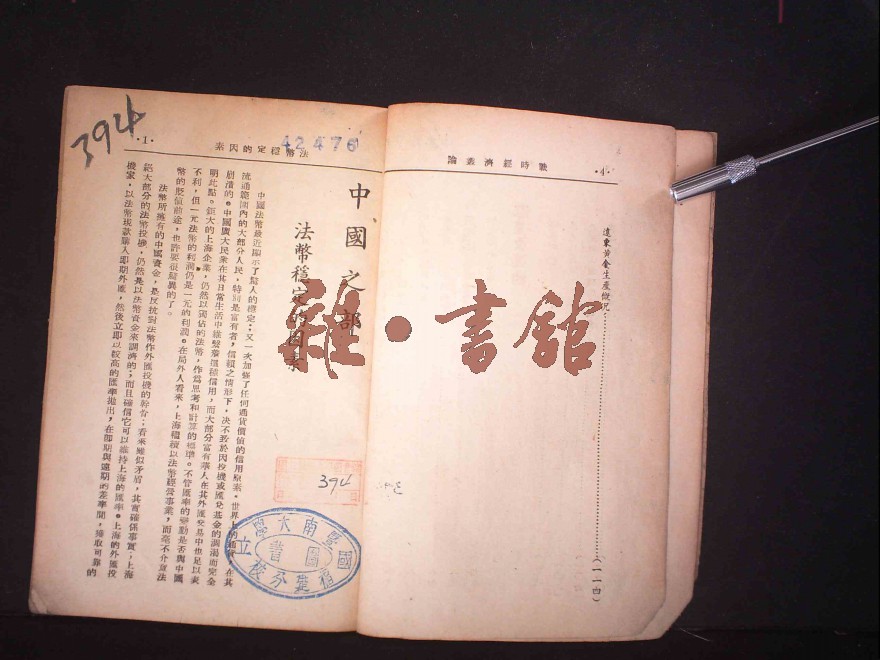 戰時經濟叢論
·4·
遠東黃金生產概況……(一一四)
394
42476
·1·
法幣穩定的因素
中國之部
法幣穩定的因素
中國法幣最近顯示了驚人的穩定；又一次加强了任何通貨價値的信用原素。世界上的
流通範圍內的大部分人民，特別是富有者，信賴之情形下，决不致於因投機或匯兌基金的涸渴而完全
崩潰的。中國廣大民衆在其日常生活中維繫着這種信用，而大部分富有華人在其外匯交易中也足以表
明此點。鉅大的上海企業，仍然以獨佔的法幣，作爲思考和計算的標準。不管匯率的變動是否與中國
不利，但一元法幣的利潤仍是一元的利潤。在局外人看來，上海繼續以法幣經營事業，而毫不介意法
幣的貶値前途，也許要很驚異的了。
法幣所擁有的中國資金，是反抗對法幣作外匯投機的幹骨；看來雖似矛盾，其實確係事實；上海
絕大部分的法幣投機，仍然是以法幣資金來調濟的；而且確信它可以維持上海的匯率。上海的外匯投
機家，以法幣現款購入卽期外匯，然後立卽以較高的匯率拋出，在卽期與遠期的差率間，獲取可靠的
雜·書館
394
國立暨南大學
圖書館